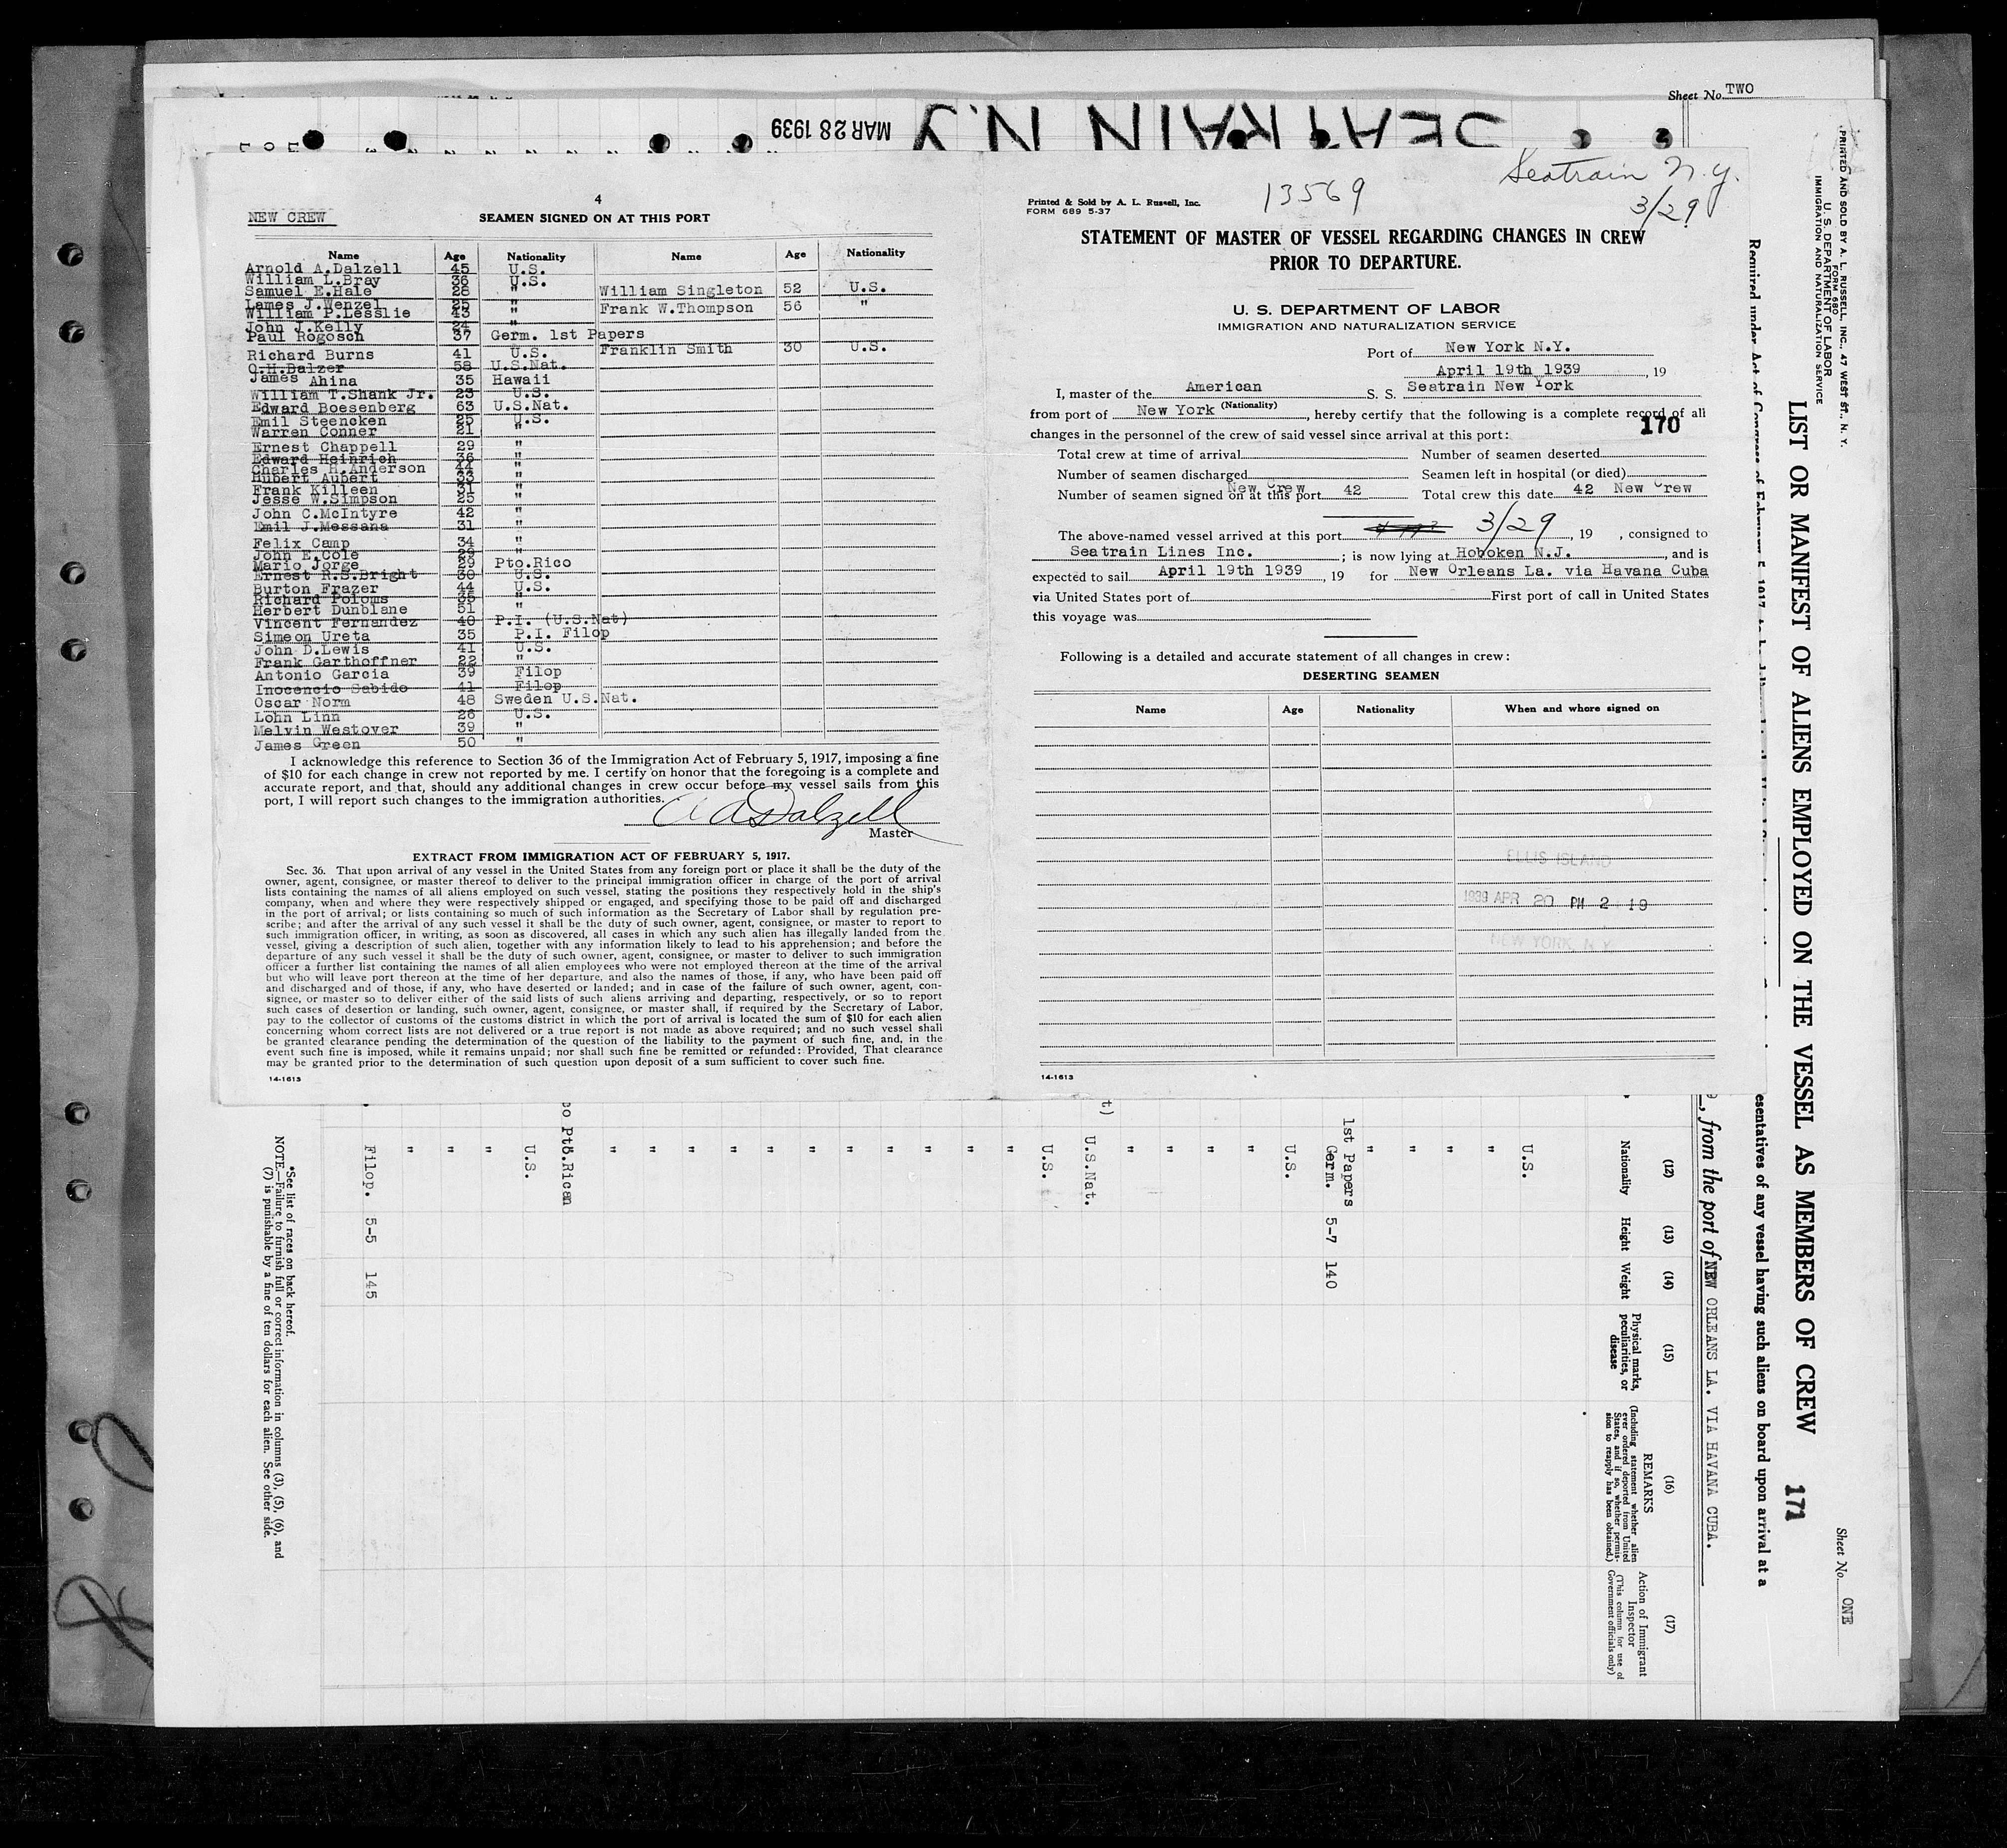 Sheet No. TWO
SEATRAIN N.Y
MAR 28 1939
4
NEW CREW
SEAMEN SIGNED ON AT THIS PORT
Name Age Nationality Name Age Nationality
Arnold A.Dalzell 45 U.S.
William L.Bray 36 U.S.
Samuel E.Hale 28 " William Singleton 52 U.S.
Lames J.Wenzel 25 " Frank W.Thompson 56 "
William P.Lesslie 43 "
John J.Kelly 24 "
Paul Rogosch 37 Germ. 1st Papers
Richard Burns 41 U.S. Franklin Smith 30 U.S.
O.H.Balzer 58 U.S.Nat.
James Ahina 35 Hawaii
William T.Shank Jr. 23 U.S.
Edward Boesenberg 63 U.S.Nat.
Emil Steencken 25 U.S.
Warren Conner 21 "
Ernest Chappell 29 "
Edward Heinrich 36 "
Charles H.Anderson 44 "
Hubert Aubert 33 "
Frank Killeen 31 "
Jesse W.Simpson 25 "
John C.McIntyre 42 "
Emil J.Messana 31 "
Felix Camp 34 "
John E.Cole 29 "
Mario Jorge 29 Pto.Rico
Ernest R.S.Bright 30 U.S.
Burton Frazer 44 U.S.
Richard Poloms 35 "
Herbert Dunblane 51 "
Vincent Fernandez 40 P.I. (U.S.Nat)
Simeon Ureta 35 P.I. Filop
John D.Lewis 41 U.S.
Frank Garthoffner 22 "
Antonio Garcia 39 Filop
Inocencio Sabido 41 Filop
Oscar Norm 48 Sweden U.S.Nat.
Lohn Linn 26 U.S.
Melvin Westover 39 "
James Green 50 "
I acknowledge this reference to Section 36 of the Immigration Act of February 5, 1917, imposing a fine
of $10 for each change in crew not reported by me. I certify on honor that the foregoing is a complete and
accurate report, and that, should any additional changes in crew occur before my vessel sails from this
port, I will report such changes to the immigration authorities.
A A Dalzell
Master
EXTRACT FROM IMMIGRATION ACT OF FEBRUARY 5, 1917.
Sec. 36. That upon arrival of any vessel in the United States from any foreign port or place it shall be the duty of the
owner, agent, consignee, or master thereof to deliver to the principal immigration officer in charge of the port of arrival
lists containing the names of all aliens employed on such vessel, stating the positions they respectively hold in the ship's
company, when and where they were respectively shipped or engaged, and specifying those to be paid off and discharged
in the port of arrival; or lists containing so much of such information as the Secretary of Labor shall by regulation pre-
scribe; and after the arrival of any such vessel it shall be the duty of such owner, agent, consignee, or master to report to
such immigration officer, in writing, as soon as discovered, all cases in which any such alien has illegally landed from the
vessel, giving a description of such alien, together with any information likely to lead to his apprehension; and before the
departure of any such vessel it shall be the duty of such owner, agent, consignee, or master to deliver to such immigration
officer a further list containing the names of all alien employees who were not employed thereon at the time of the arrival
but who will leave port thereon at the time of her departure, and also the names of those, if any, who have been paid off
and discharged and of those, if any, who have deserted or landed; and in case of the failure of such owner, agent, con-
signee, or master so to deliver either of the said lists of such aliens arriving and departing, respectively, or so to report
such cases of desertion or landing, such owner, agent, consignee, or master shall, if required by the Secretary of Labor,
pay to the collector of customs of the customs district in which the port of arrival is located the sum of $10 for each alien
concerning whom correct lists are not delivered or a true report is not made as above required; and no such vessel shall
be granted clearance pending the determination of the question of the liability to the payment of such fine, and, in the
event such fine is imposed, while it remains unpaid; nor shall such fine be remitted or refunded: Provided, That clearance
may be granted prior to the determination of such question upon deposit of a sum sufficient to cover such fine.
14-1613
Printed & Sold by A. L. Russell, Inc.
FORM 689 5-37
13569
Seatrain N.Y.
3/29
STATEMENT OF MASTER OF VESSEL REGARDING CHANGES IN CREW
PRIOR TO DEPARTURE.
U. S. DEPARTMENT OF LABOR
IMMIGRATION AND NATURALIZATION SERVICE
Port of New York N.Y.
April 19th 1939, 19
I, master of the American S. S. Seatrain New York
(Nationality)
from port of New York, hereby certify that the following is a complete record of all
changes in the personnel of the crew of said vessel since arrival at this port:
170
Total crew at time of arrival Number of seamen deserted
Number of seamen discharged Seamen left in hospital (or died)
Number of seamen signed on at this port New Crew 42 Total crew this date 42 New Crew
The above-named vessel arrived at this port 3/29, 19 , consigned to
Seatrain Lines Inc. ; is now lying at Hoboken N.J. , and is
expected to sail April 19th 1939, 19 for New Orleans La. via Havana Cuba
via United States port of First port of call in United States
this voyage was
Following is a detailed and accurate statement of all changes in crew:
DESERTING SEAMEN
Name Age Nationality When and where signed on
ELLIS ISLAND
1939 APR 20 PM 2 19
NEW YORK N Y
14-1613
PRINTED AND SOLD BY A. L. RUSSELL, INC., 47 WEST ST., N. Y.
FORM 680
U. S. DEPARTMENT OF LABOR
IMMIGRATION AND NATURALIZATION SERVICE
LIST OR MANIFEST OF ALIENS EMPLOYED ON THE VESSEL AS MEMBERS OF CREW
171
Sheet No. ONE
Required under Act of Congress of February 5, 1917
esentatives of any vessel having such aliens on board upon arrival at a
, from the port of NEW ORLEANS LA. VIA HAVANA CUBA.
(12) (13) (14) (15) (16) (17)
Nationality Height Weight
Physical marks, peculiarities, or disease
REMARKS
(Including statement whether alien ever ordered deported from United States, and if so, whether permission to reapply has been obtained.)
Action of Immigrant Inspector
(This column for use of Government officials only)
U.S.
"
"
"
"
1st Papers
Germ. 5-7 140
U.S.
"
"
"
"
U.S.Nat.
U.S.
"
"
"
"
"
"
"
"
"
"
"
Pto.Rican
U.S.
"
"
"
Filop. 5-5 145
*See list of races on back hereof.
NOTE.—Failure to furnish full or correct information in columns (3), (5), (6), and
(7) is punishable by a fine of ten dollars for each alien. See other side.